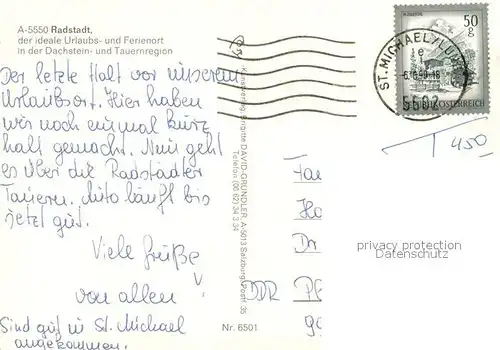 A-5550 Radstadt,
der ideale Urlaubs- und Ferienort
in der Dachstein- und Tauernregion
Der letzte Halt vor unserem
Urlaubsort. Hier haben
wir noch einmal kurz
halt gemacht. Nun geht
es über die Radstädter
Tauern. Auto läuft bis
jetzt gut.
Viele Grüße
von allen
Sind gut in St. Michael
angekommen.
Brigitte DAVID-GRÜNDLER, A-5013 Salzburg, Postf. 35
Telefon (06 62) 34 3 34
Nr. 6501
50
g
ÖSTERREICH
ST. MICHAEL/LUNG
5582
T 450
DDR
privacy protection
Datenschutz